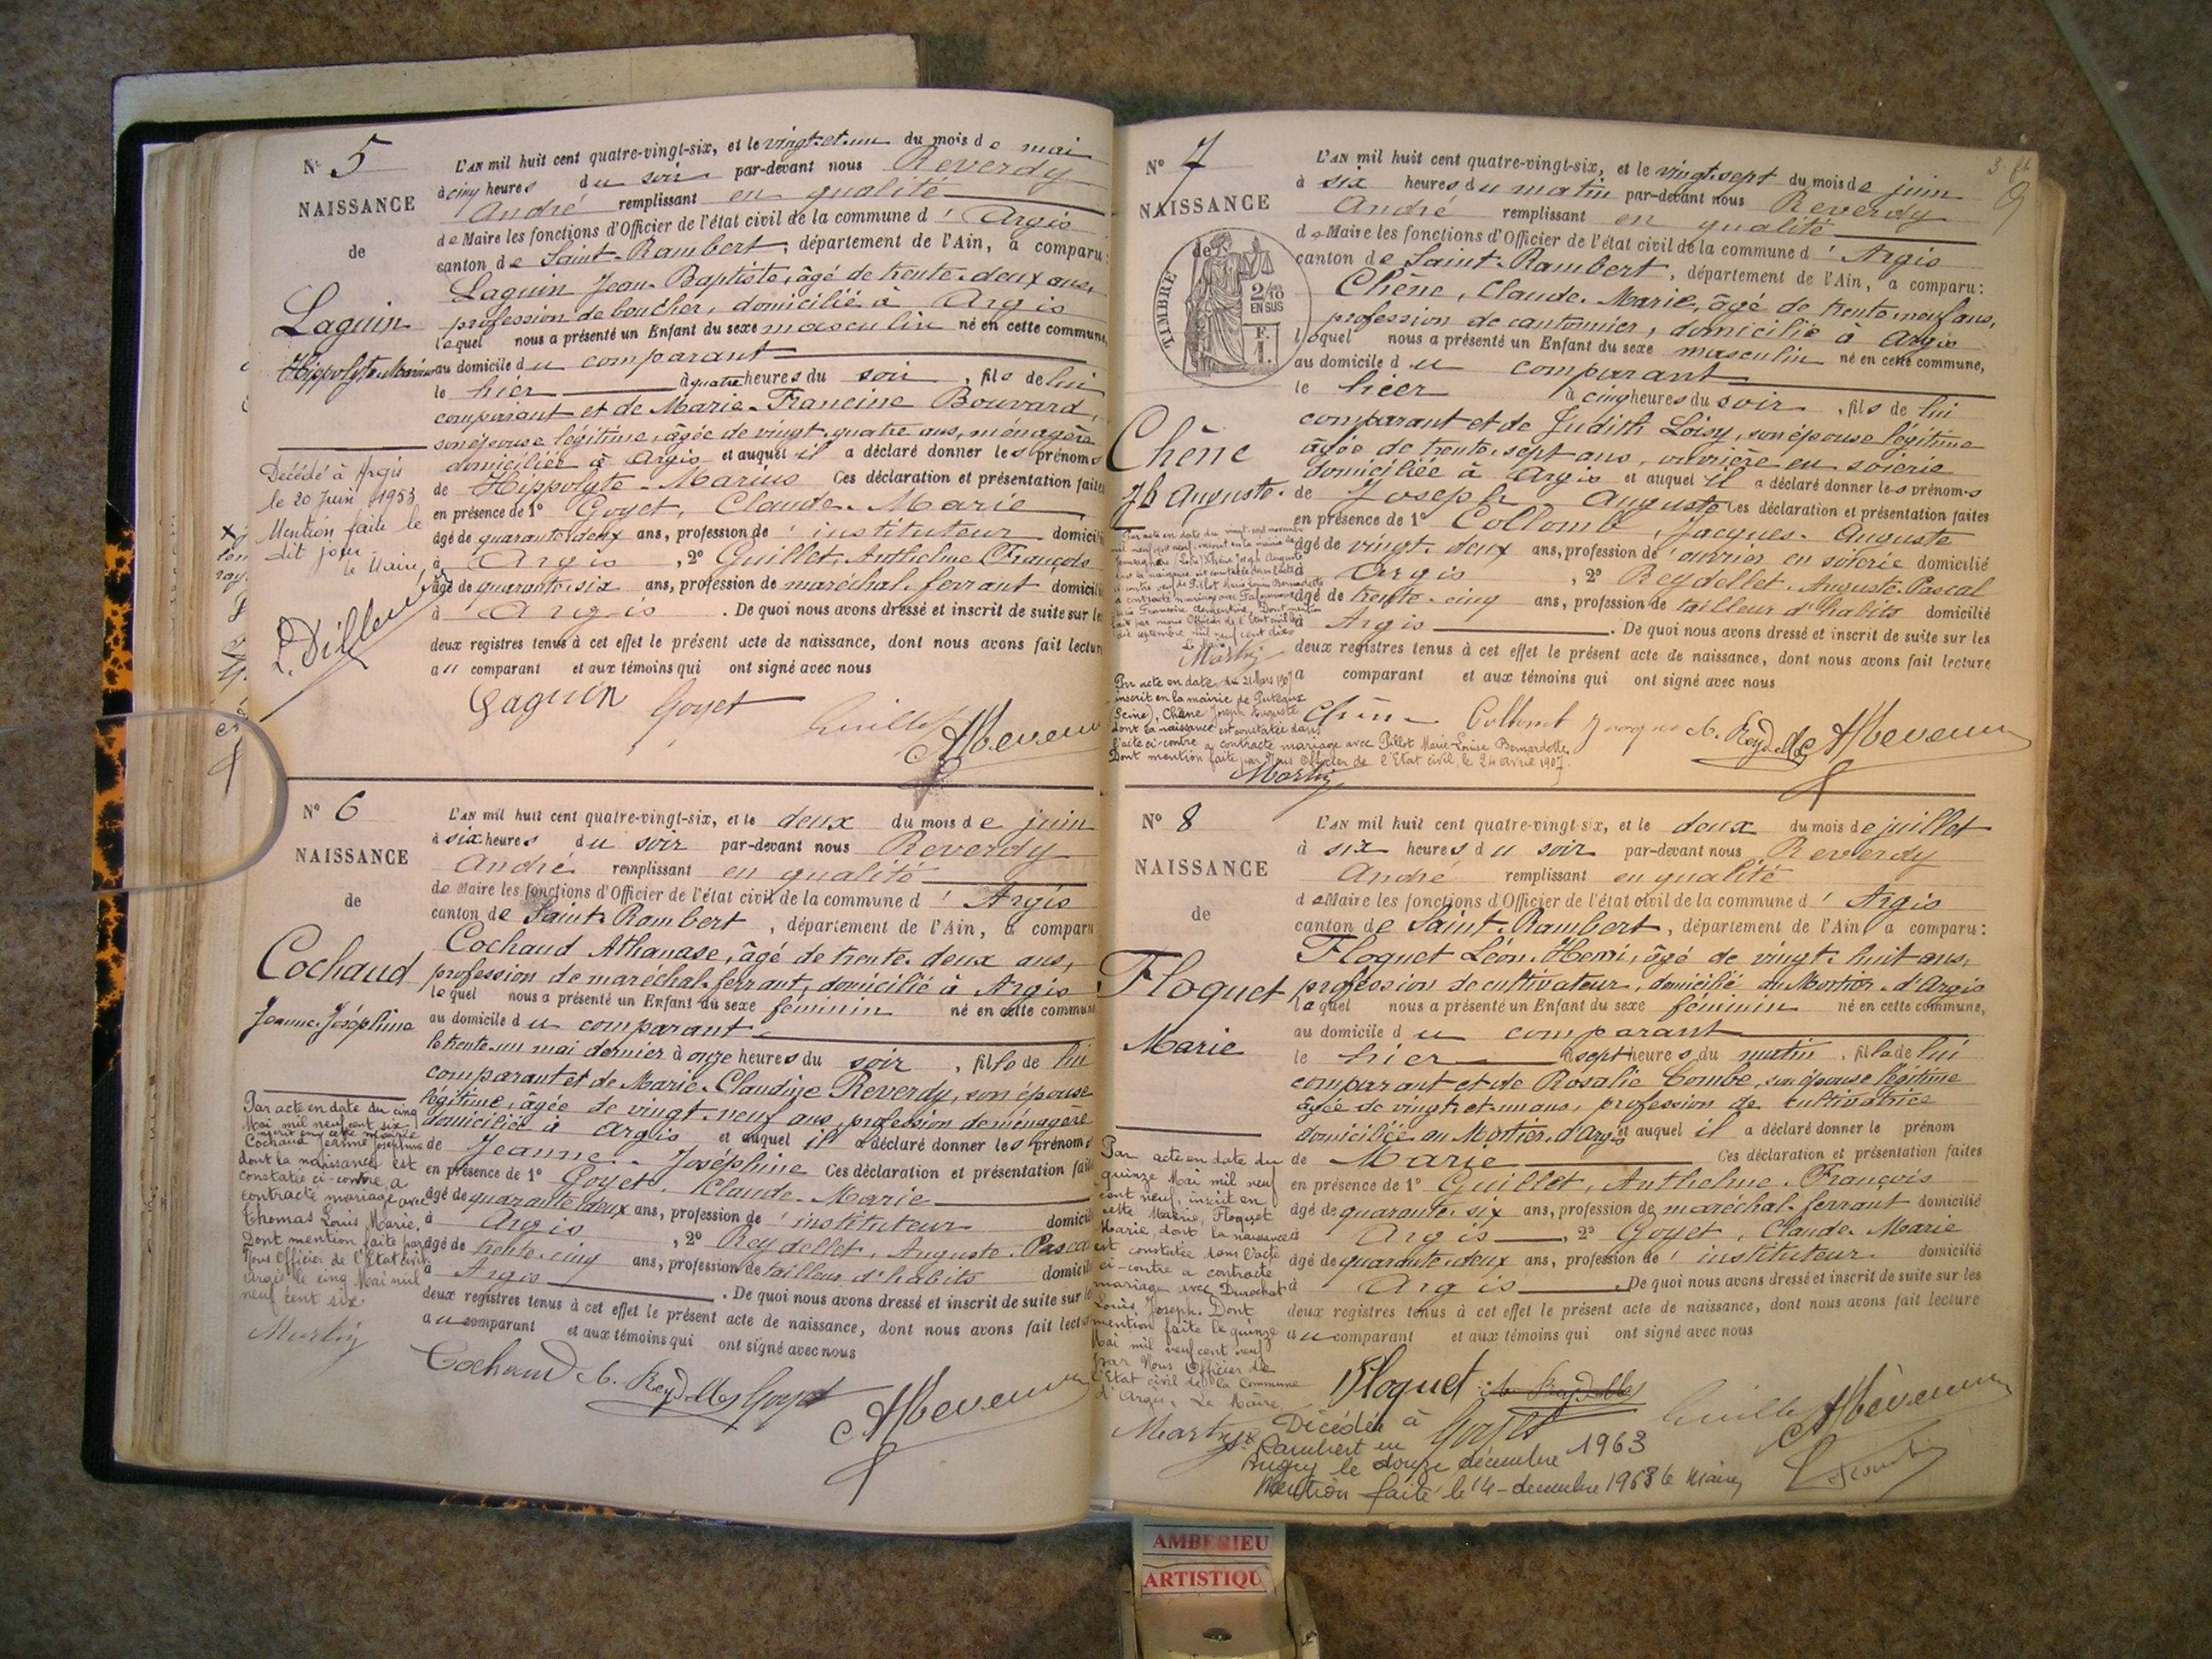 N° 5
NAISSANCE
de
Laguin
Hippolyte-Marius
Décédé à Argis
le 20 Juin 1953
Mention faite le
dit jour
le Maire,
L'AN mil huit cent quatre-vingt-six, et le vingt-et-un du mois de mai
à cinq heures du soir par-devant nous Reverdy
André remplissant en qualité
de Maire les fonctions d'Officier de l'état civil de la commune d'Argis
canton de Saint-Rambert, département de l'Ain, a comparu:
Laguin Jean-Baptiste, âgé de trente-deux ans,
profession de boucher, domicilié à Argis
lequel nous a présenté un Enfant du sexe masculin né en cette commune,
au domicile du comparant
le hier à quatre heures du soir, fils de lui
comparant et de Marie-Francine Bouvard,
son épouse légitime, âgée de vingt-quatre ans, ménagère
domiciliée à Argis et auquel il a déclaré donner les prénoms
de Hippolyte-Marius Ces déclaration et présentation faites
en présence de 1° Goyet, Claude-Marie
âgé de quarante-deux ans, profession d'instituteur domicilié
à Argis, 2° Guillet, Anthelme François
âgé de quarante-six ans, profession de maréchal-ferrant domicilié
à Argis. De quoi nous avons dressé et inscrit de suite sur les
deux registres tenus à cet effet le présent acte de naissance, dont nous avons fait lecture
au comparant et aux témoins qui ont signé avec nous
Laguin Goyet Guillet
N° 6
NAISSANCE
de
Cochaud
Jeanne-Joséphine
Par acte en date du cinq
Mai mil neuf cent six
inscrit en cette mairie
Cochaud Jeanne Joséphine
dont la naissance est
constatée ci-contre, a
contracté mariage avec
Thomas Louis Marie,
Dont mention faite par
Nous Officier de l'Etat civil
Argis le cinq Mai mil
neuf cent six
Martin
L'AN mil huit cent quatre-vingt-six, et le deux du mois de juin
à six heures du soir par-devant nous Reverdy
André remplissant en qualité
de Maire les fonctions d'Officier de l'état civil de la commune d'Argis
canton de Saint-Rambert, département de l'Ain, a comparu
Cochaud Athanase, âgé de trente-deux ans,
profession de maréchal-ferrant, domicilié à Argis
lequel nous a présenté un Enfant du sexe féminin né en cette commune
au domicile du comparant
le trente-un mai dernier à onze heures du soir, fille de lui
comparant et de Marie-Claudine Reverdy, son épouse
légitime, âgée de vingt-neuf ans, profession de ménagère
domiciliée à Argis et auquel il a déclaré donner les prénoms
de Jeanne-Joséphine Ces déclaration et présentation faites
en présence de 1° Goyet, Claude-Marie
âgé de quarante-deux ans, profession d'instituteur domicilié
à Argis, 2° Reydellet, Auguste-Pascal
âgé de trente-cinq ans, profession de tailleur d'habits domicilié
à Argis. De quoi nous avons dressé et inscrit de suite sur les
deux registres tenus à cet effet le présent acte de naissance, dont nous avons fait lecture
au comparant et aux témoins qui ont signé avec nous
Cochaud A. Reydellet Goyet
N° 7
NAISSANCE
de
TIMBRE
2/10
EN SUS
F.
1.
Chêne
Jh Auguste
Martin
Par acte en date du 21 Mars 1907
inscrit en la mairie de Puteaux
(Seine), Chêne Joseph Auguste
dont la naissance est constatée dans
l'acte ci-contre a contracté mariage avec Pillot Marie-Louise Bernardette.
Dont mention faite par Nous Officier de l'Etat civil, le 24 avril 1907.
Martin
L'AN mil huit cent quatre-vingt-six, et le vingt-sept du mois de juin
à six heures du matin par-devant nous Reverdy
André remplissant en qualité
de Maire les fonctions d'Officier de l'état civil de la commune d'Argis
canton de Saint-Rambert, département de l'Ain, a comparu:
Chêne, Claude-Marie, âgé de trente-neuf ans,
profession de cantonnier, domicilié à Argis
lequel nous a présenté un Enfant du sexe masculin né en cette commune,
au domicile du comparant
le hier à cinq heures du soir, fils de lui
comparant et de Judith Loisy, son épouse légitime
âgée de trente-sept ans, ouvrière en soierie
domiciliée à Argis et auquel il a déclaré donner les prénoms
de Joseph Auguste Ces déclaration et présentation faites
en présence de 1° Collomb, Jacques-Auguste
âgé de vingt-deux ans, profession d'ouvrier en soierie domicilié
à Argis, 2° Reydellet, Auguste-Pascal
âgé de trente-cinq ans, profession de tailleur d'habits domicilié
à Argis. De quoi nous avons dressé et inscrit de suite sur les
deux registres tenus à cet effet le présent acte de naissance, dont nous avons fait lecture
a comparant et aux témoins qui ont signé avec nous
Chêne Collomb Jacques A. Reydellet
N° 8
NAISSANCE
de
Floquet
Marie
Par acte en date du
quinze Mai mil neuf
cent neuf, inscrit en
cette Mairie, Floquet
Marie, dont la naissance
est constatée dans l'acte
ci-contre a contracté
mariage avec Durochat
Louis, Joseph. Dont
mention faite le quinze
Mai mil neuf cent neuf
par Nous Officier de
l'Etat civil de la Commune
d'Argis, Le Maire
Martin
L'AN mil huit cent quatre-vingt-six, et le deux du mois de juillet
à six heures du soir par-devant nous Reverdy
André remplissant en qualité
de Maire les fonctions d'Officier de l'état civil de la commune d'Argis
canton de Saint-Rambert, département de l'Ain, a comparu:
Floquet Léon-Henri, âgé de vingt-huit ans,
profession de cultivateur, domicilié au Mortier-d'Argis
lequel nous a présenté un Enfant du sexe féminin né en cette commune,
au domicile du comparant
le hier à sept heures du matin, fille de lui
comparant et de Rosalie Combe, son épouse légitime
âgée de vingt-et-un ans, profession de cultivatrice
domiciliée au Mortier-d'Argis et auquel il a déclaré donner le prénom
de Marie Ces déclaration et présentation faites
en présence de 1° Guillet, Anthelme-François
âgé de quarante-six ans, profession de maréchal-ferrant domicilié
à Argis, 2° Goyet, Claude-Marie
âgé de quarante-deux ans, profession d'instituteur domicilié
à Argis. De quoi nous avons dressé et inscrit de suite sur les
deux registres tenus à cet effet le présent acte de naissance, dont nous avons fait lecture
au comparant et aux témoins qui ont signé avec nous
Floquet A. Reydellet Goyet Guillet
Décédée à
St Rambert en
Bugey le douze décembre 1963
Mention faite le 14 decembre 1963 le Maire,
AMBERIEU
ARTISTIQU